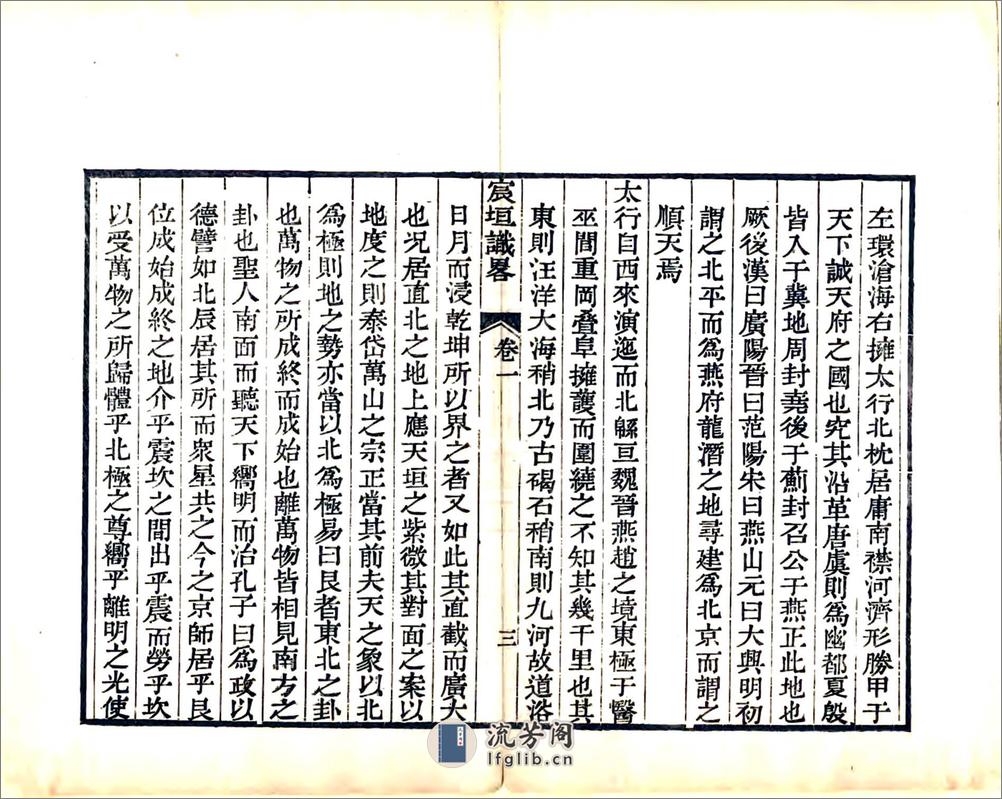 左環滄海右擁太行北枕居庸南襟河濟形勝甲于
天下誠天府之國也究其沿革唐虞則爲幽都夏殷
皆入于冀地周封堯後于薊封召公于燕正此地也
厥後漢曰廣陽晉曰范陽宋曰燕山元曰大興明初
謂之北平而爲燕府龍潛之地尋建爲北京而謂之
順天焉
太行自西來演迤而北緜亘魏晉燕趙之境東極于醫
巫閭重岡疊阜擁護而圍繞之不知其幾千里也其
東則汪洋大海稍北乃古碣石稍南則九河故道浴
宸垣識畧
卷一
三
日月而浸乾坤所以界之者又如此其直截而廣大
也况居直北之地上應天垣之紫微其對面之案以
地度之則泰岱萬山之宗正當其前夫天之象以北
爲極則地之勢亦當以北爲極易曰艮者東北之卦
也萬物之所成終而成始也離萬物皆相見南方之
卦也聖人南面而聽天下嚮明而治孔子曰爲政以
德譬如北辰居其所而衆星共之今之京師居乎艮
位成始成終之地介乎震坎之間出乎震而勞乎坎
以受萬物之所歸體乎北極之尊嚮乎離明之光使
流芳阁
lfglib.cn